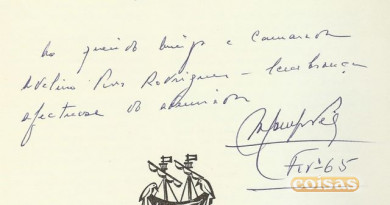 Ao querido amigo e camarada
Avelino Pires Rodrigues – lembrança
afectuosa do
Fevº 65
coisas